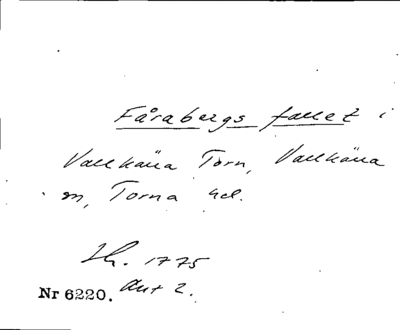 Fårabergs fallet i
Vallkära Torn, Vallkära
sn, Torna hd.
Lh. 1775
Akt 2.
Nr 6220.